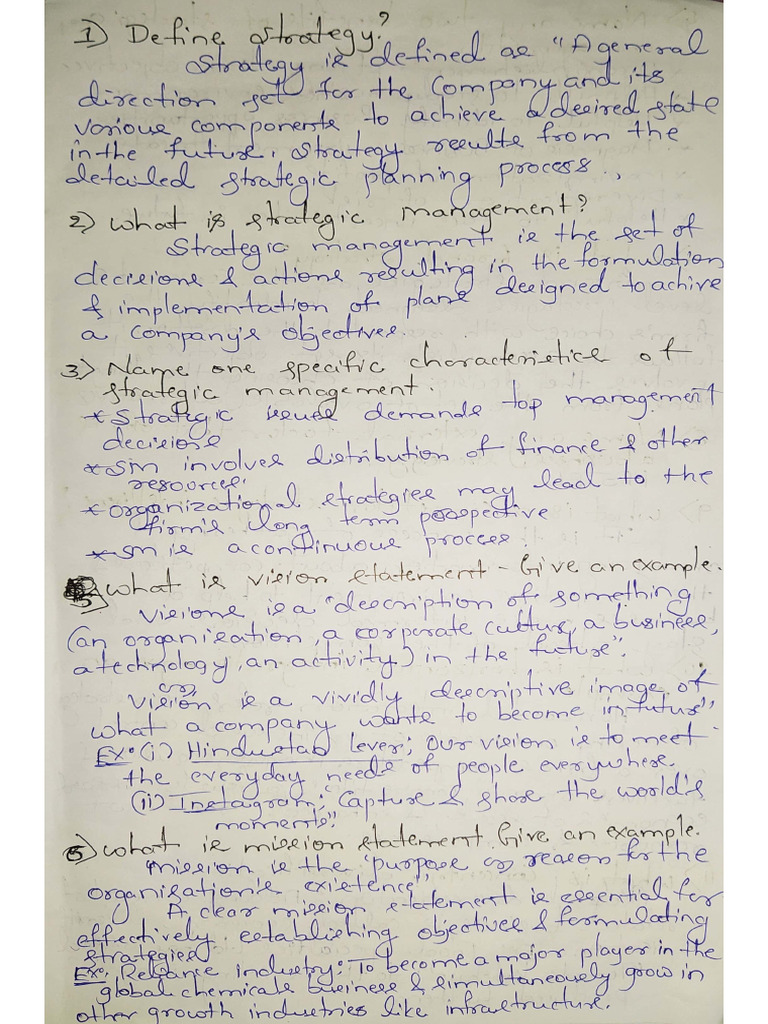 1) Define strategy?
Strategy is defined as "A general
direction set for the Company and its
various components to achieve a desired state
in the future. Strategy results from the
detailed strategic planning process.,
2) What is strategic management?
Strategic management is the set of
decisions & actions resulting in the formulation
& implementation of plans designed to achive
a company's objectives.
3) Name one specific characteristics of
strategic management.
* Strategic issues demands top management
decisions
* SM involves distribution of finance & other
resources.
* organizational strategies may lead to the
firm's long term perspective
* SM is a continuous process.
What is vision statement - Give an example.
Visions is a "description of something
(an organisation, a corporate culture, a business,
a technology, an activity) in the future".
or
Vision is a vividly descriptive image of
what a company wants to become in future"
Ex: (i) Hindustab Lever; Our vision is to meet
the everyday needs of people everywhere.
(ii) Instagram; "Capture & share the world's
moments".
5) What is mission statement. Give an example.
Mission is the "purpose or reason for the
organisation's existence".
A clear mission statement is essential for
effectively establishing objectives & formulating
strategies
Ex: Reliance industry: To become a major player in the
global chemicals business & simultaneously grow in
other growth industries like infrastructure.